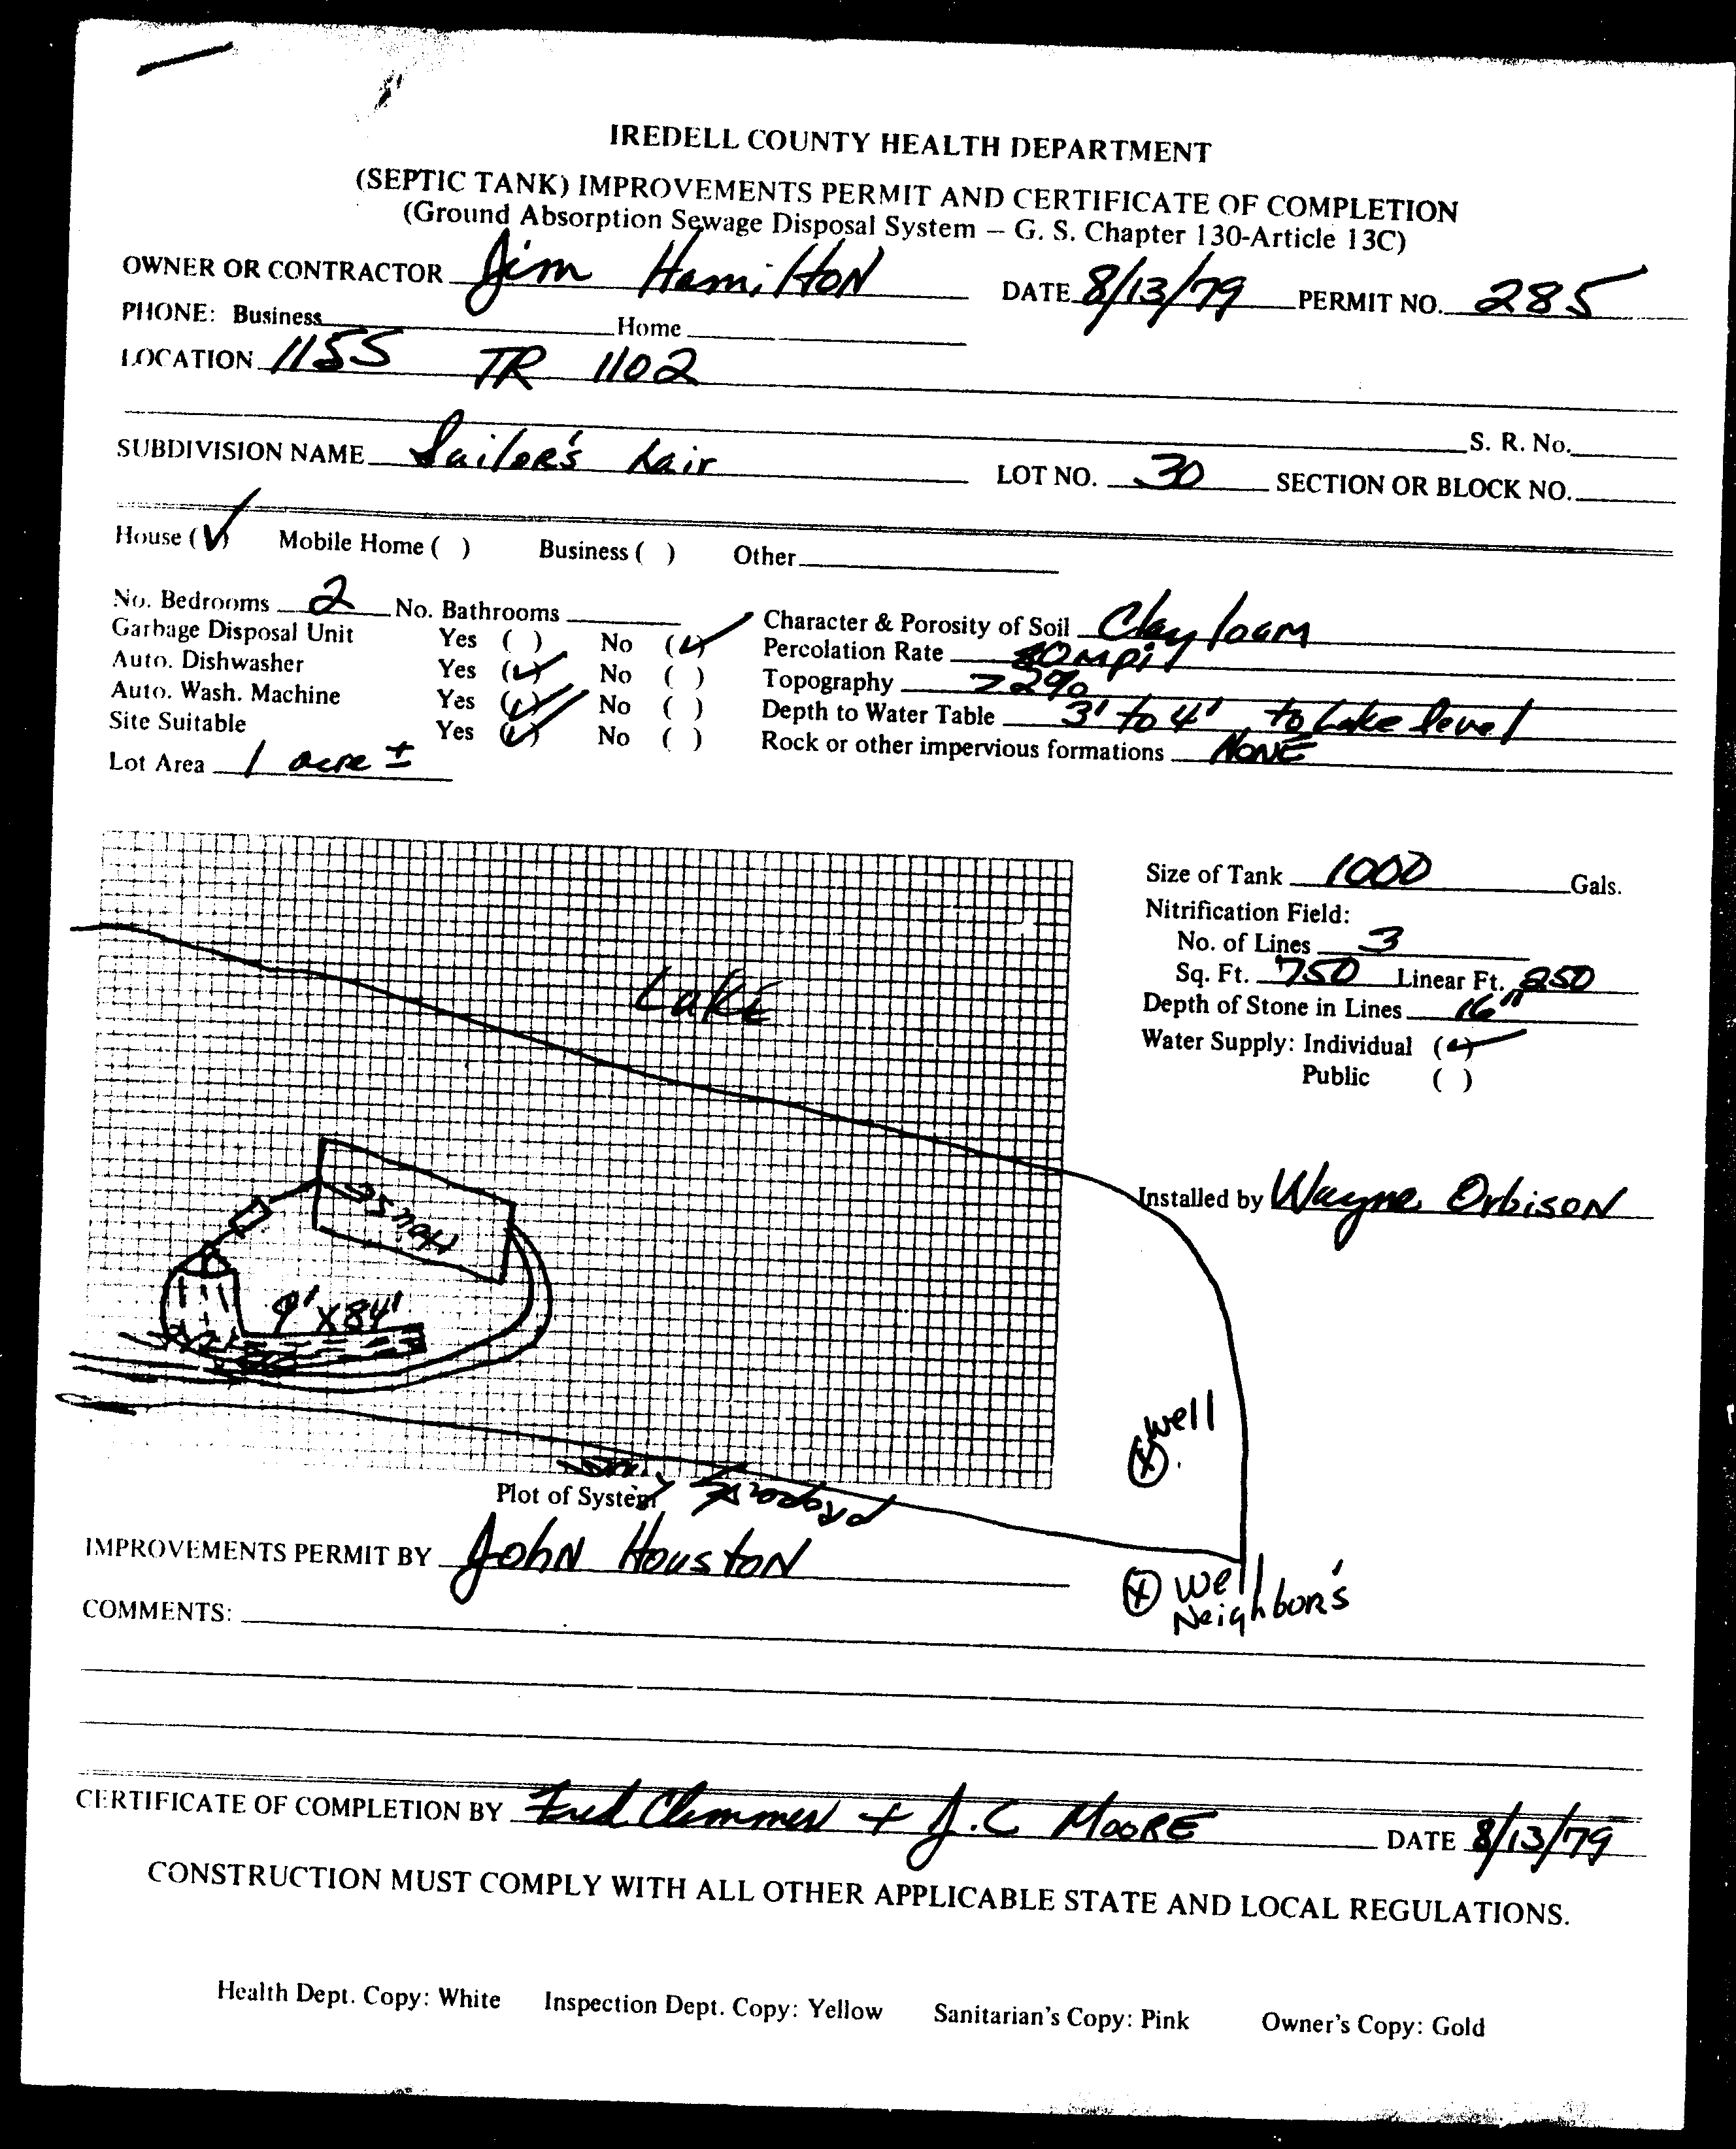 IREDELL COUNTY HEALTH DEPARTMENT
(SEPTIC TANK) IMPROVEMENTS PERMIT AND CERTIFICATE OF COMPLETION
(Ground Absorption Sewage Disposal System — G. S. Chapter 130-Article 13C)
OWNER OR CONTRACTOR Jim HamiltoN DATE 8/13/79 PERMIT NO. 285
PHONE: Business Home
LOCATION 1155 TR 1102
S. R. No.
SUBDIVISION NAME Sailor's Lair LOT NO. 30 SECTION OR BLOCK NO.
House (✓) Mobile Home ( ) Business ( ) Other
No. Bedrooms 2 No. Bathrooms
Garbage Disposal Unit Yes ( ) No (✓)
Auto. Dishwasher Yes (✓) No ( )
Auto. Wash. Machine Yes (✓) No ( )
Site Suitable Yes (✓) No ( )
Lot Area 1 acre ±
Character & Porosity of Soil Clay loam
Percolation Rate mpi
Topography >2%
Depth to Water Table 3' to 4' to Lake level
Rock or other impervious formations NONE
Size of Tank 1000 Gals.
Nitrification Field:
No. of Lines 3
Sq. Ft. 750 Linear Ft. 250
Depth of Stone in Lines 16"
Water Supply: Individual (✓)
Public ( )
Installed by Wayne OrbisoN
Lake
House
9' X 84'
well
Plot of System
Property
IMPROVEMENTS PERMIT BY JohN HoustoN
well
Neighbor's
COMMENTS:
CERTIFICATE OF COMPLETION BY Fred Clemmer + J.C MOORE DATE 8/13/79
CONSTRUCTION MUST COMPLY WITH ALL OTHER APPLICABLE STATE AND LOCAL REGULATIONS.
Health Dept. Copy: White Inspection Dept. Copy: Yellow Sanitarian's Copy: Pink Owner's Copy: Gold